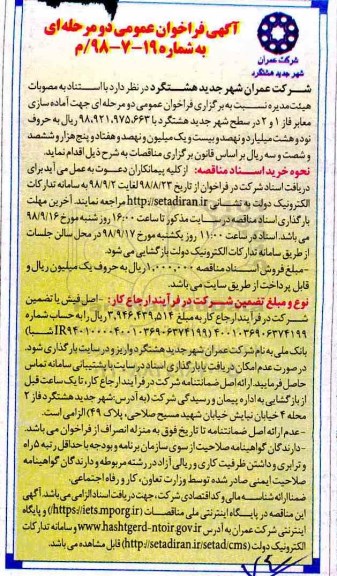 آگهی فراخوان عمومی دو مرحله‌ای
به شماره ۱۹-۷-۹۸/م
شرکت عمران
شهر جدید هشتگرد
شرکت عمران شهر جدید هشتگرد در نظر دارد با استناد به مصوبات
هیئت مدیره نسبت به برگزاری فراخوان عمومی دو مرحله‌ای جهت آماده سازی
معابر فاز ۱ و ۲ در سطح شهر جدید هشتگرد با ۹۸,۹۲۱,۹۷۵,۶۶۳ ریال به حروف
نود و هشت میلیارد و نهصد و بیست و یک میلیون و نهصد و هفتاد و پنج هزار و ششصد
و شصت و سه ریال بر اساس قانون برگزاری مناقصات به شرح ذیل اقدام نماید.
نحوه خرید اسناد مناقصه: از کلیه پیمانکاران دعوت به عمل می‌آید برای
دریافت اسناد شرکت در فراخوان از تاریخ ۹۸/۸/۲۲ لغایت ۹۸/۹/۲ به سامانه تدارکات
الکترونیک دولت به نشانی http://setadiran.ir مراجعه نمایند. آخرین مهلت
بارگذاری اسناد مناقصه در سایت مذکور تا ساعت ۱۶:۰۰ روز شنبه مورخ ۹۸/۹/۱۶
می باشد. اسناد در ساعت ۱۱:۰۰ روز یکشنبه مورخ ۹۸/۹/۱۷ در محل سالن جلسات
از طریق سامانه تدارکات الکترونیک دولت بازگشایی می شود.
-مبلغ فروش اسناد مناقصه ۱,۰۰۰,۰۰۰ ریال به حروف یک میلیون ریال و
قابل پرداخت از طریق سایت می‌باشد.
نوع و مبلغ تضمین شرکت در فرآیند ارجاع کار: -اصل فیش یا تضمین
شرکت در فرآیند ارجاع کار به مبلغ ۳,۹۴۶,۴۳۹,۵۱۴ ریال را به حساب شماره
بانک ملی به نام شرکت عمران شهر جدید هشتگرد واریز و در سایت بارگذاری شود.
در صورت عدم امکان دریافت یا بارگذاری اسناد در سایت با پشتیبانی سامانه تماس
حاصل فرمایید. ارائه اصل ضمانتنامه شرکت در فرآیند ارجاع کار تا یک ساعت قبل
از بازگشایی به اداره پیمان و رسیدگی شرکت (به آدرس: شهر جدید هشتگرد فاز ۲
محله ۴ خیابان نیایش خیابان شهید مسیح صلاحی، پلاک ۴۹) الزامی است.
-عدم ارائه اصل ضمانتنامه تا تاریخ فوق به منزله انصراف از فراخوان می باشد.
-دارندگان گواهینامه صلاحیت از سوی سازمان برنامه و بودجه با حداقل رتبه ۵ راه
و ترابری و داشتن ظرفیت کاری و ریالی آزاد در رشته مربوطه و دارندگان گواهینامه
صلاحیت ایمنی صادر شده توسط وزارت تعاون، کار و رفاه اجتماعی.
ضمنا ارائه شناسه ملی و کد اقتصادی شرکت، جهت دریافت اسناد الزامی می‌باشد. آگهی
این مناقصه در پایگاه اینترنتی ملی مناقصات (https://iets.mporg.ir) و پایگاه
اینترنتی شرکت عمران به آدرس www.hashtgerd-ntoir.gov.ir و سامانه تدارکات
الکترونیک دولت (http://setadiran.ir/setad/cms) قابل مشاهده می باشد.